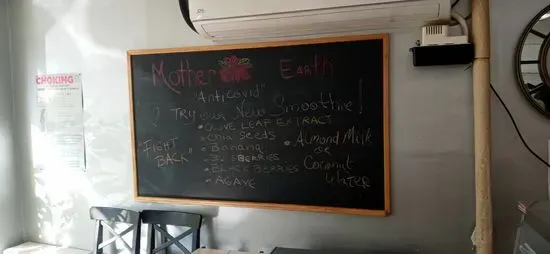 CHOKING
Mother Earth
"Anticovid"
? Try our New Smoothie!
• OLIVE LEAF EXTRACT
• Chia Seeds
• Banana
"FIGHT BACK"
BERRIES
• BLACKBERRIES
• AGAVE
• Almond Milk
OR
Coconut
Water